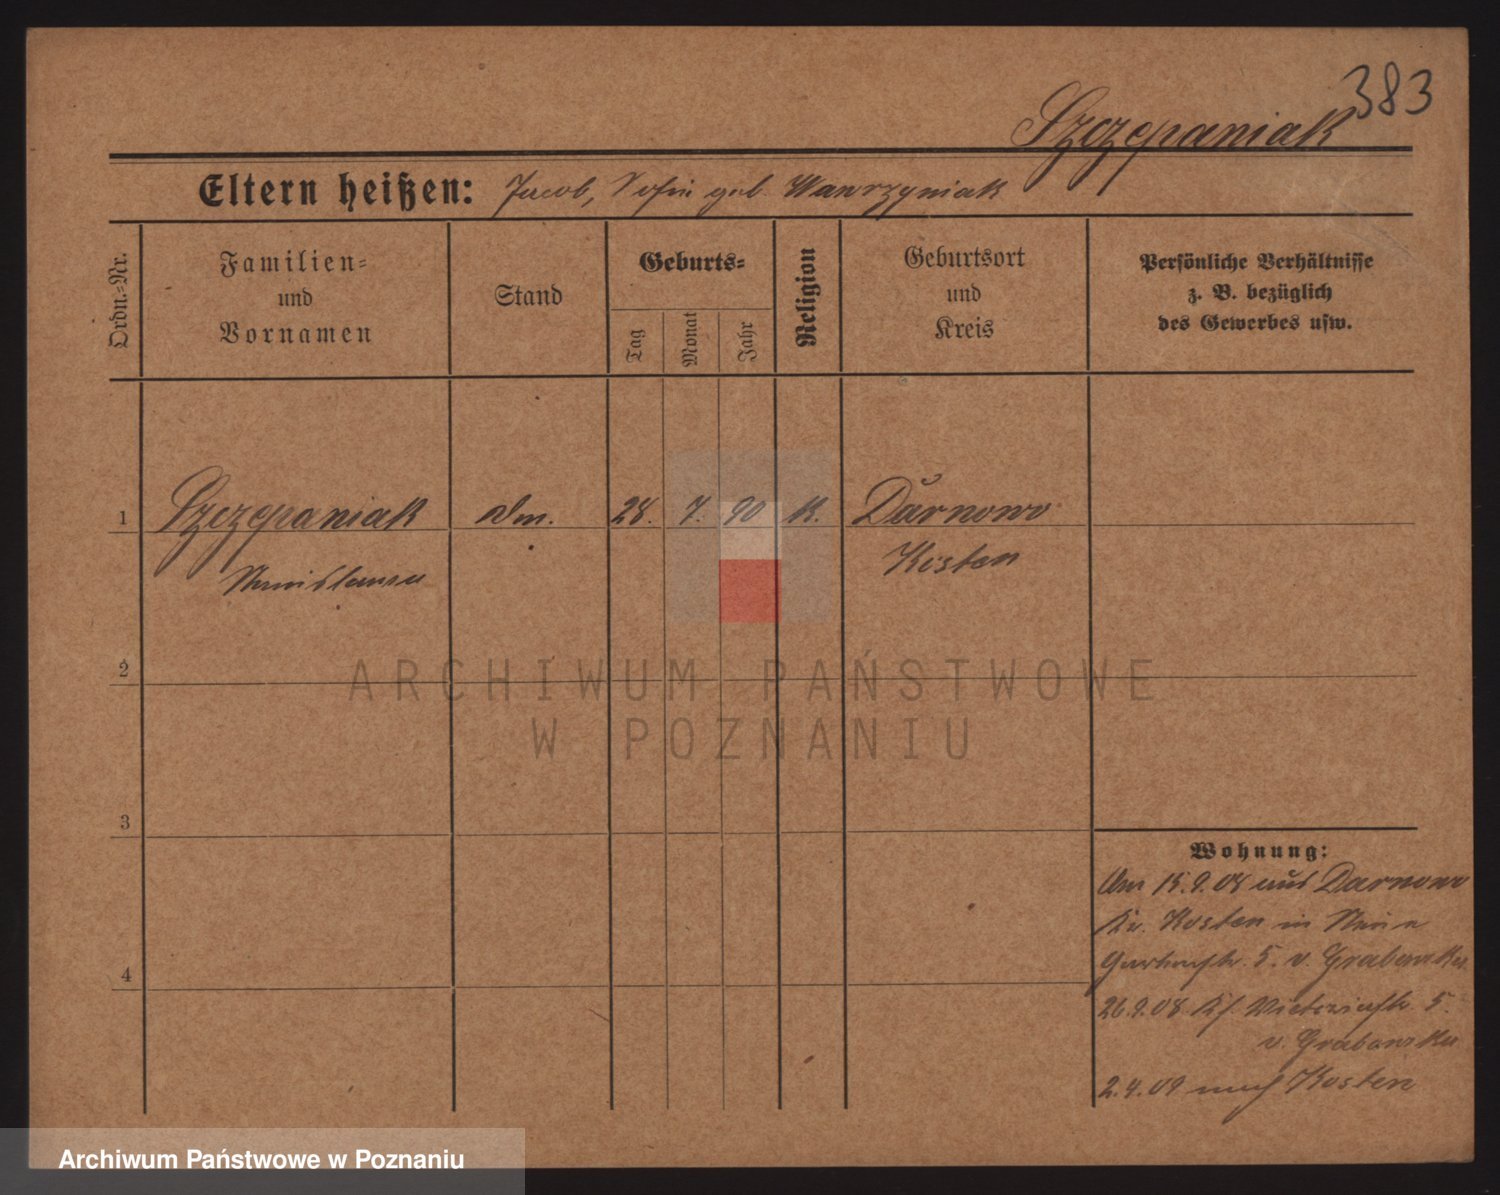 383
Szczepaniak
Eltern heißen: Jacob, Sofie geb. Wawrzyniak
Ordn.-Nr.
Familien-
und
Vornamen
Stand
Geburts-
Tag
Monat
Jahr
Religion
Geburtsort
und
Kreis
Persönliche Verhältnisse
z. B. bezüglich
des Gewerbes usw.
1 Szczepaniak 28. 7. 90 K. Darnowo
Stanislawa Kosten
2
ARCHIWUM PAŃSTWOWE
W POZNANIU
3
4
Wohnung:
Am 15.9.08 aus Darnowo
Kr. Kosten in
5. v. Grabowska
26.9.08 5.
v. Grabowska
2.4.09 nach Kosten
Archiwum Państwowe w Poznaniu